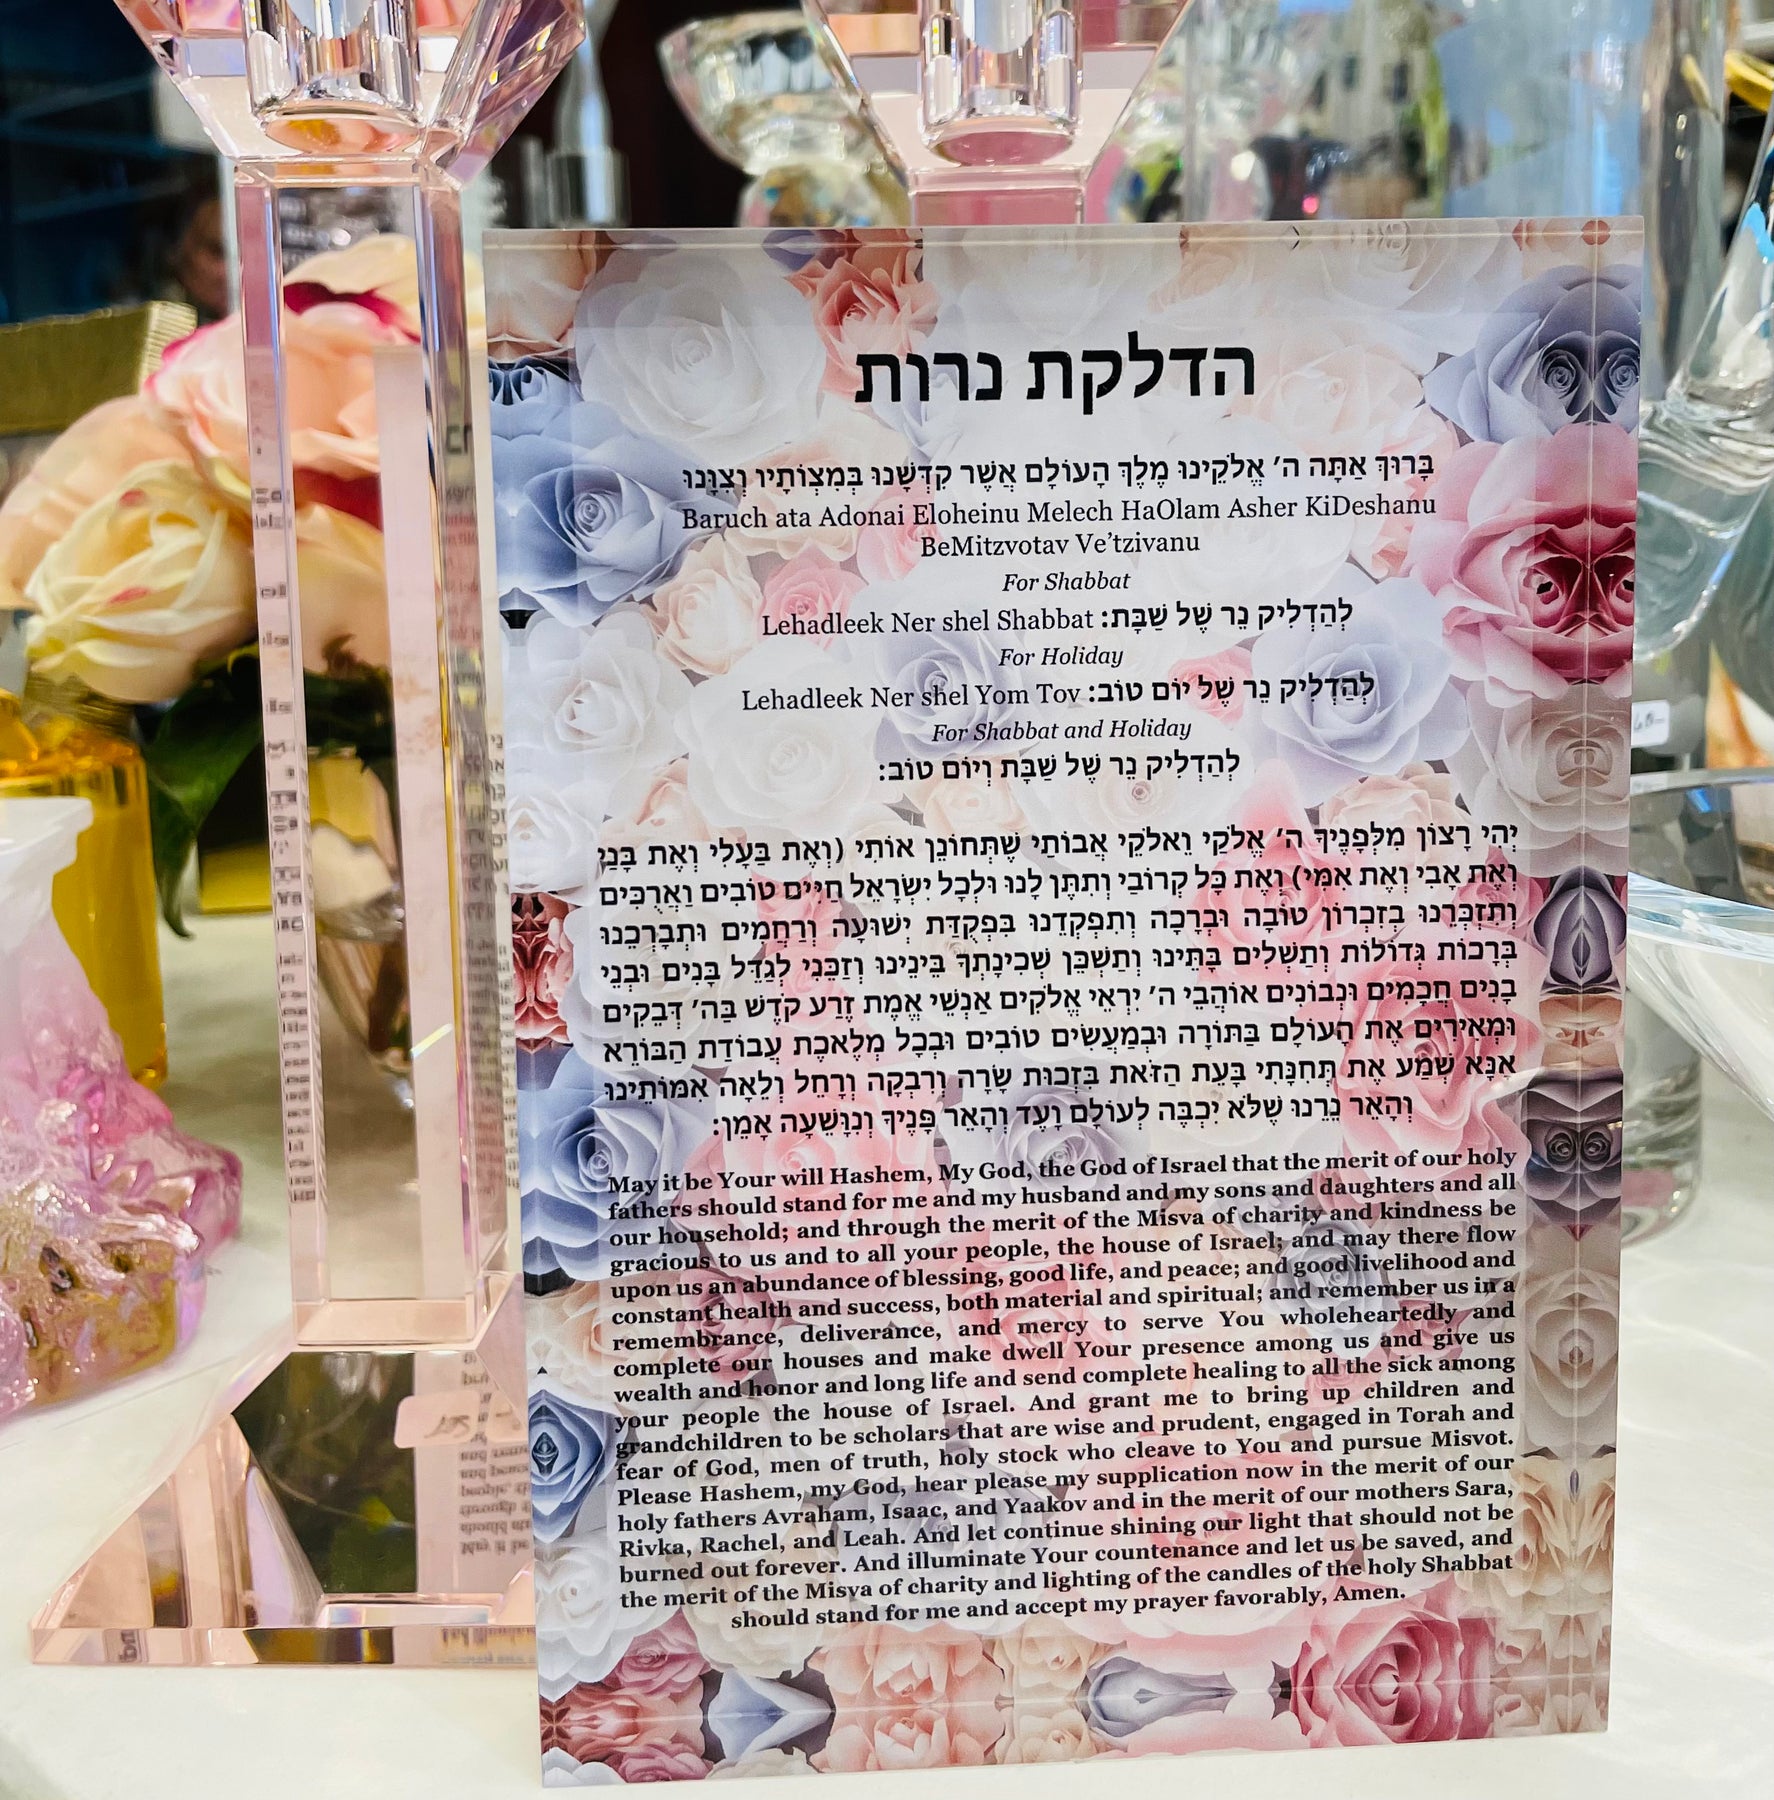 הדלקת נרות
בָּרוּךְ אַתָּה ה׳ אֱלֹקֵינוּ מֶלֶךְ הָעוֹלָם אֲשֶׁר קִדְּשָׁנוּ בְּמִצְוֹתָיו וְצִוָּנוּ
Baruch ata Adonai Eloheinu Melech HaOlam Asher KiDeshanu
BeMitzvotav Ve’tzivanu
For Shabbat
Lehadleek Ner shel Shabbat :לְהַדְלִיק נֵר שֶׁל שַׁבָּת
For Holiday
Lehadleek Ner shel Yom Tov :לְהַדְלִיק נֵר שֶׁל יוֹם טוֹב
For Shabbat and Holiday
לְהַדְלִיק נֵר שֶׁל שַׁבָּת וְיוֹם טוֹב:
יְהִי רָצוֹן מִלְּפָנֶיךָ ה׳ אֱלֹקַי וֵאלֹקֵי אֲבוֹתַי שֶׁתְּחוֹנֵן אוֹתִי (וְאֶת בַּעֲלִי וְאֶת בָּנַי
וְאֶת אָבִי וְאֶת אִמִּי) וְאֶת כָּל קְרוֹבַי וְתִתֶּן לָנוּ וּלְכָל יִשְׂרָאֵל חַיִּים טוֹבִים וַאֲרֻכִּים
וְתִזְכְּרֵנוּ בְּזִכְרוֹן טוֹבָה וּבְרָכָה וְתִפְקְדֵנוּ בִּפְקֻדַּת יְשׁוּעָה וְרַחֲמִים וּתְבָרְכֵנוּ
בְּרָכוֹת גְּדוֹלוֹת וְתַשְׁלִים בָּתֵּינוּ וְתַשְׁכֵּן שְׁכִינָתְךָ בֵּינֵינוּ וְזַכֵּנִי לְגַדֵּל בָּנִים וּבְנֵי
בָנִים חֲכָמִים וּנְבוֹנִים אוֹהֲבֵי ה׳ יִרְאֵי אֱלֹקִים אַנְשֵׁי אֱמֶת זֶרַע קֹדֶשׁ בַּה׳ דְּבֵקִים
וּמְאִירִים אֶת הָעוֹלָם בַּתּוֹרָה וּבְמַעֲשִׂים טוֹבִים וּבְכָל מְלֶאכֶת עֲבוֹדַת הַבּוֹרֵא
אָנָּא שְׁמַע אֶת תְּחִנָּתִי בָּעֵת הַזֹּאת בִּזְכוּת שָׂרָה וְרִבְקָה וְרָחֵל וְלֵאָה אִמּוֹתֵינוּ
וְהָאֵר נֵרֵנוּ שֶׁלֹּא יִכְבֶּה לְעוֹלָם וָעֶד וְהָאֵר פָּנֶיךָ וְנִוָּשֵׁעָה אָמֵן:
May it be Your will Hashem, My God, the God of Israel that the merit of our holy
fathers should stand for me and my husband and my sons and daughters and all
our household; and through the merit of the Misva of charity and kindness be
gracious to us and to all your people, the house of Israel; and may there flow
upon us an abundance of blessing, good life, and peace; and good livelihood and
constant health and success, both material and spiritual; and remember us in a
remembrance, deliverance, and mercy to serve You wholeheartedly and
complete our houses and make dwell Your presence among us and give us
wealth and honor and long life and send complete healing to all the sick among
your people the house of Israel. And grant me to bring up children and
grandchildren to be scholars that are wise and prudent, engaged in Torah and
fear of God, men of truth, holy stock who cleave to You and pursue Misvot.
Please Hashem, my God, hear please my supplication now in the merit of our
holy fathers Avraham, Isaac, and Yaakov and in the merit of our mothers Sara,
Rivka, Rachel, and Leah. And let continue shining our light that should not be
burned out forever. And illuminate Your countenance and let us be saved, and
the merit of the Misva of charity and lighting of the candles of the holy Shabbat
should stand for me and accept my prayer favorably, Amen.